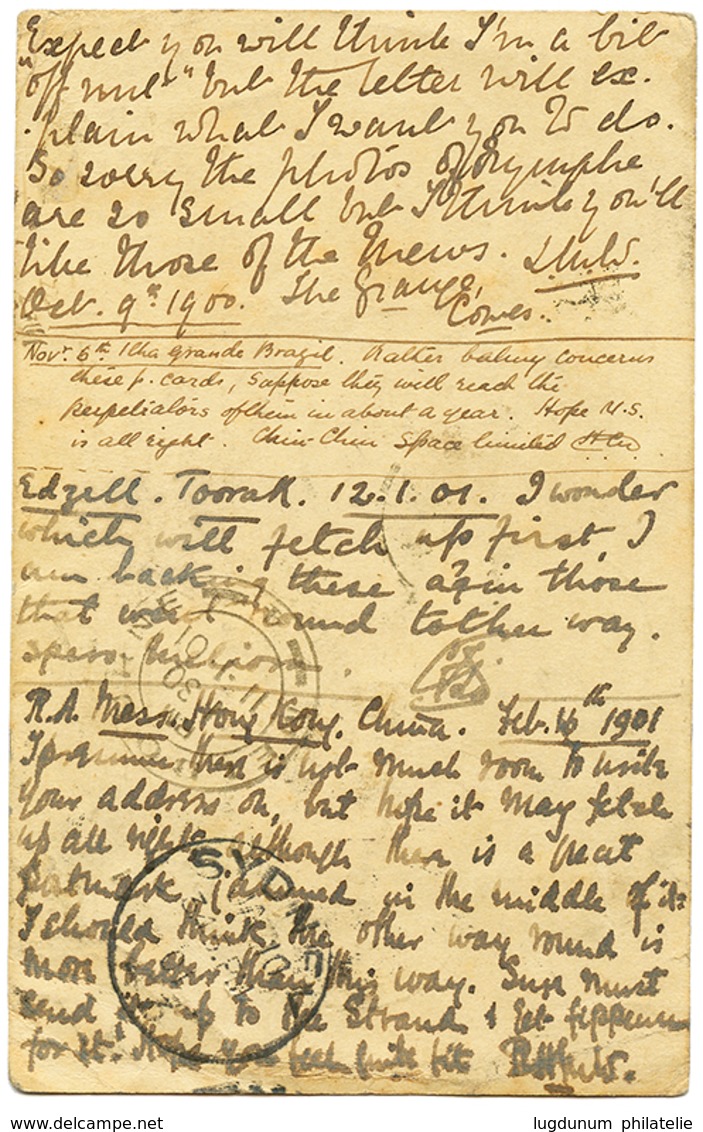 Expect you will think I'm a bit
"off nut" but the letter will ex-
plain what I want you to do.
So sorry the photos of Nymphe
are so small but I think you'll
like those of the Mews. L.M.W.
Oct. 9th 1900. The Grange,
Cowes.
Novr. 6th Ilha Grande Brazil. Rather balmy concerns
these p. cards, Suppose they will reach the
perpetrators of them in about a year. Hope U.S.
is all right. Chin-Chin Space limited
Edzell. Toorak. 12.1.01. I wonder
which will fetch up first, I
am backing these agin those
that went round tother way.
spero meliora
R.A. Mess. Hong Kong. China. Feb. 16th 1901
I presume there is not much room to write
your address on, but hope it may fetch
up all right, although there is a great
postmark jammed in the middle of it.
I should think the other way round is
more better than this way. You must
send it up to the Strand & get
for it! Hope you feel quite fit
SYDNEY
lugdunum philatelie
www.delcampe.net